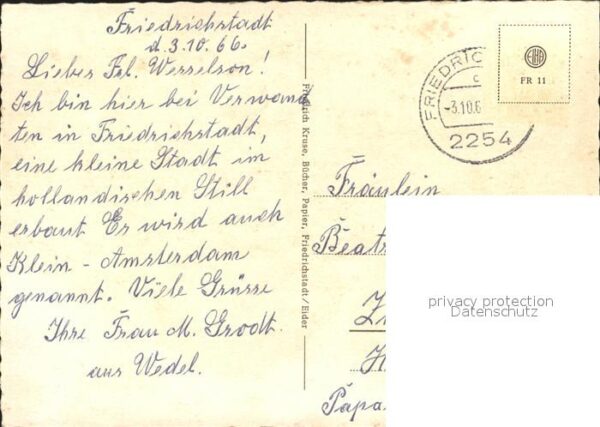 Friedrichstadt
d. 3.10.66.
Lieber Frl. Wesselson!
Ich bin hier bei Verwand
ten in Friedrichstadt,
eine kleine Stadt im
holländischen Still
erbaut Er wird auch
Klein - Amsterdam
genannt. Viele Grüsse
Ihre Frau M. Grodt.
aus Wedel.
Friedrich Kruse, Bücher, Papier, Friedrichstadt/Eider
FRIEDRIC
c
-3.10.6
2254
FR 11
Fräulein
Beatr
privacy protection
Datenschutz
Papa